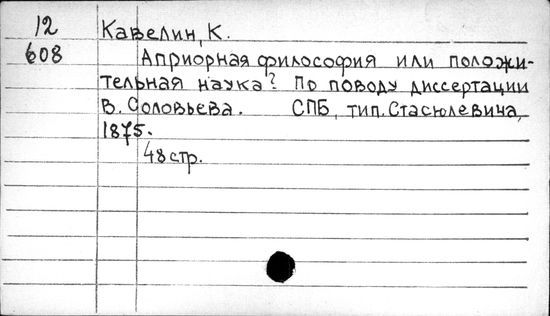 12 Кавелин, К.
608 Априорная философия или положи-
тельная наука? По поводу диссертации
В. Соловьева. СПБ, тип. Стасюлевича,
1875.
48 стр.